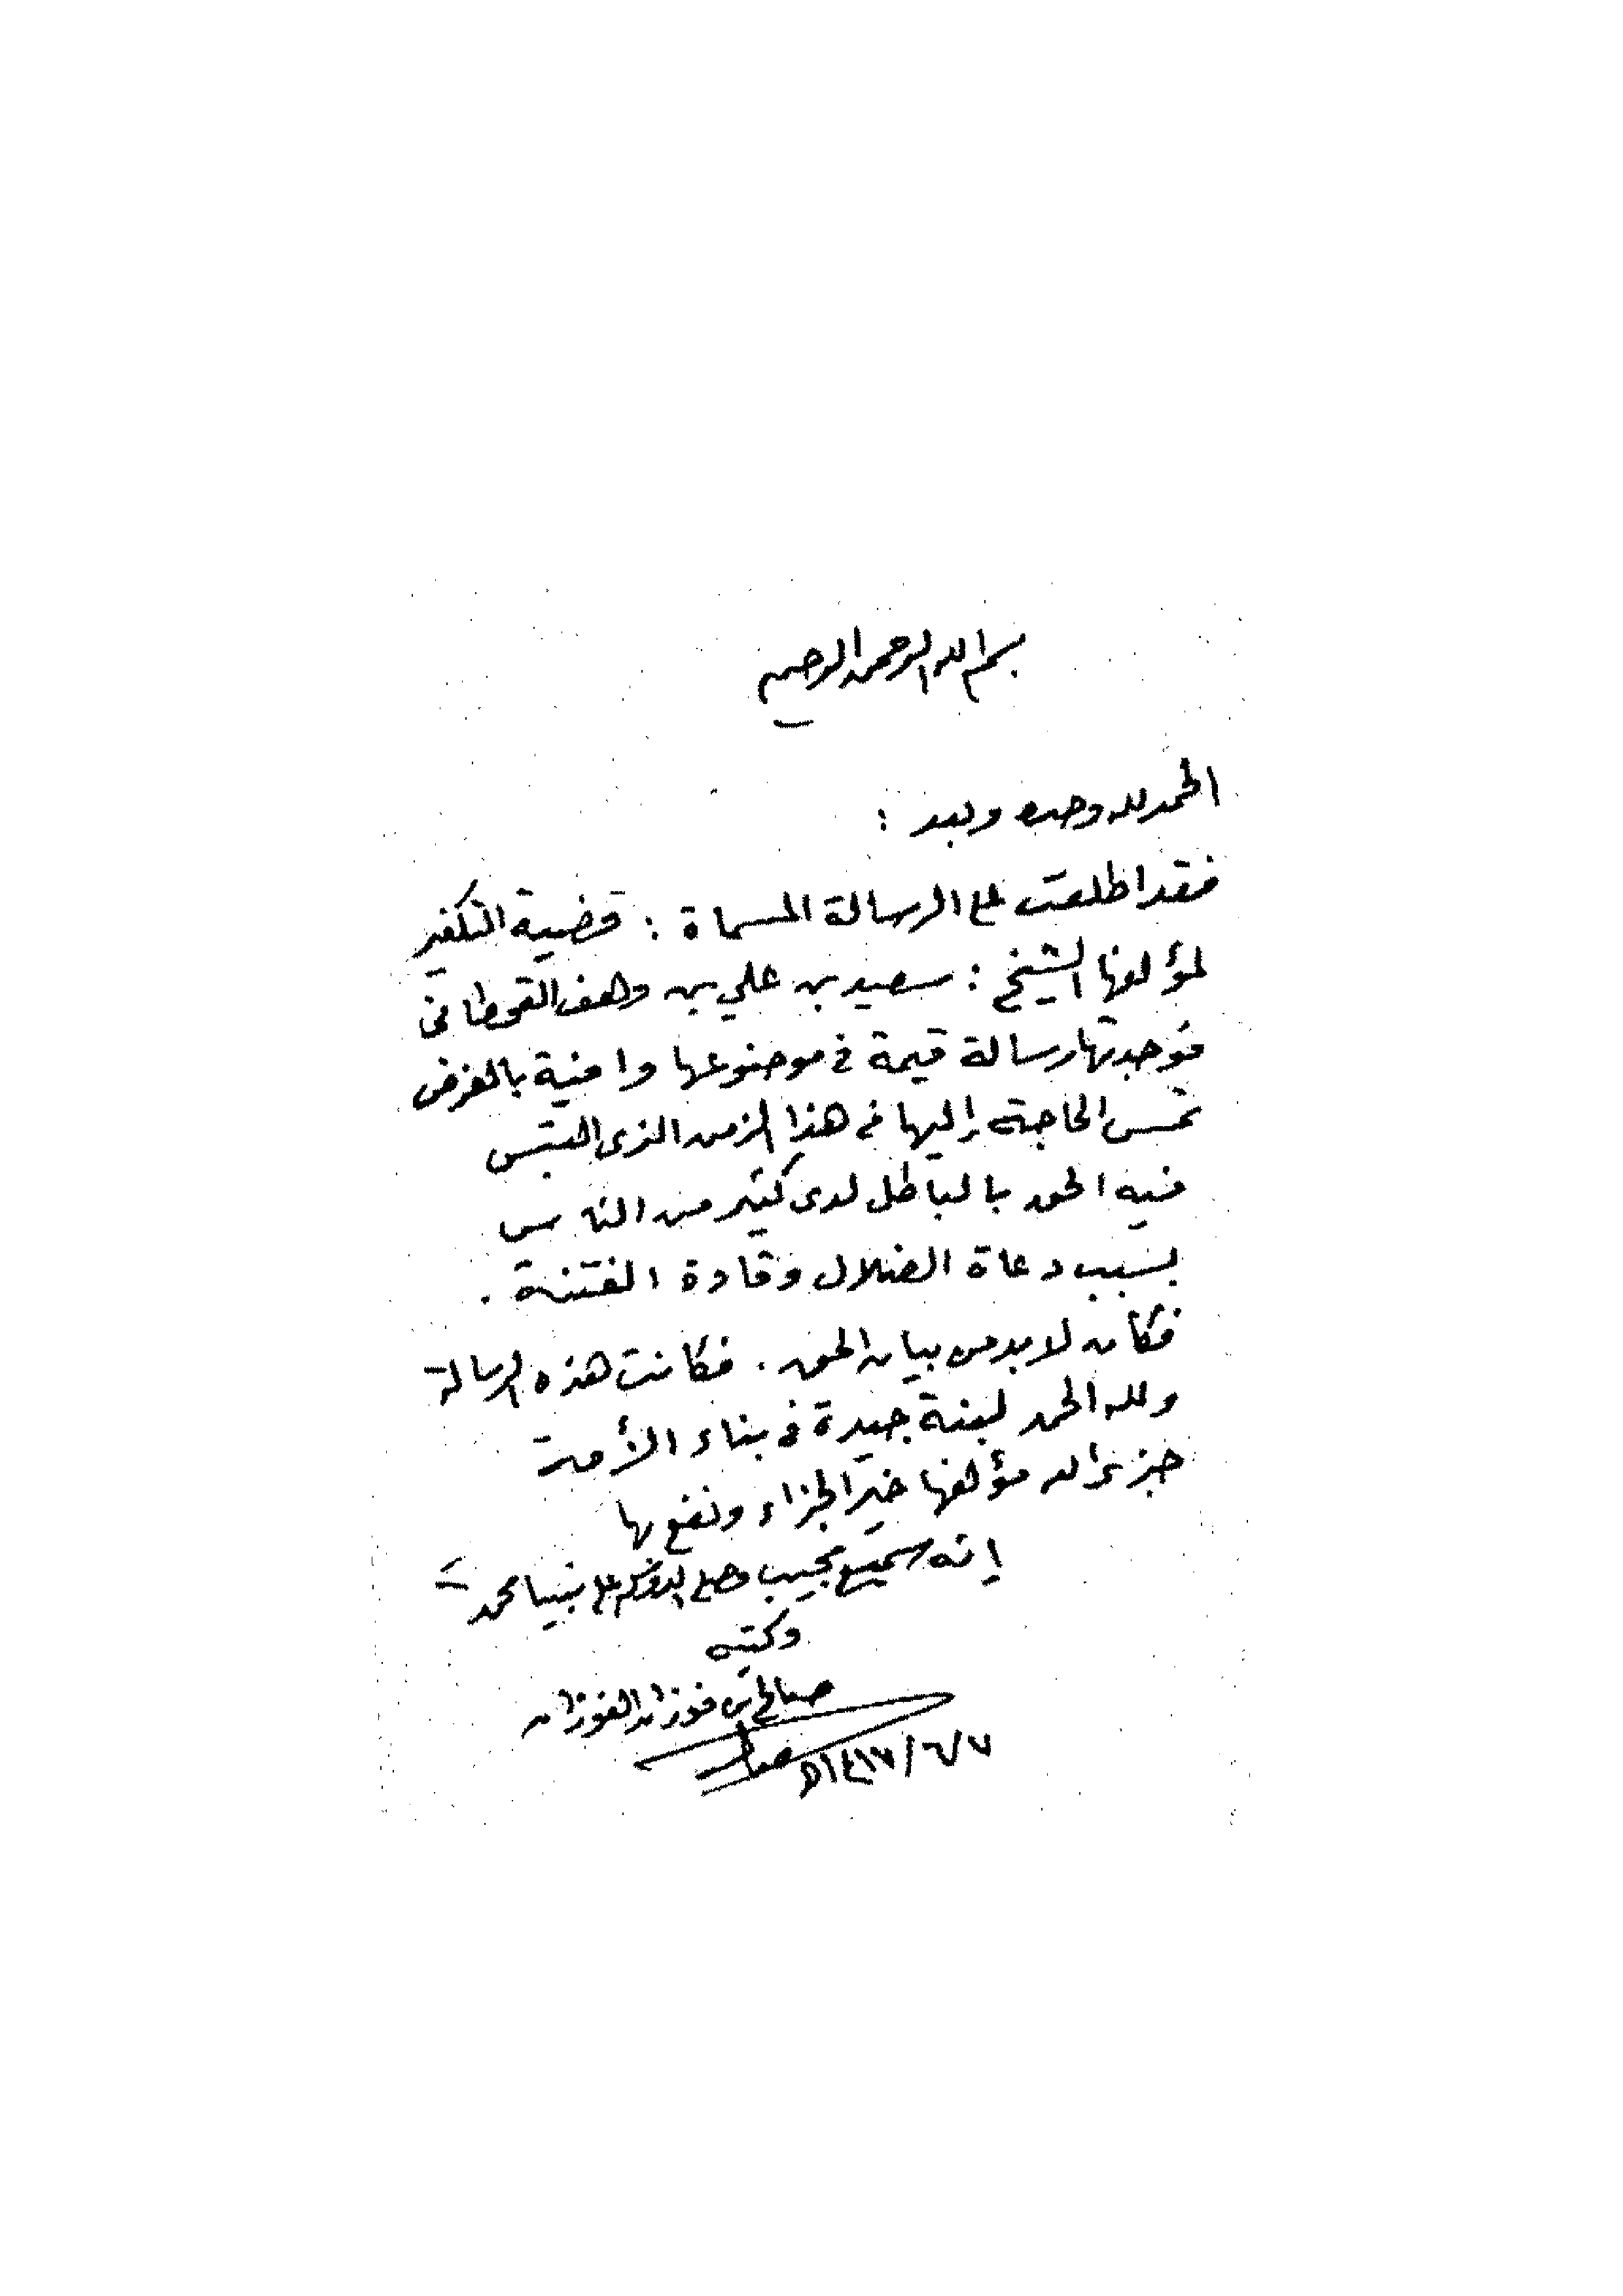 بسم الله الرحمن الرحيم
الحمد لله وحده وبعد :
فقد اطلعت على الرسالة المسماة : قضية التكفير
لمؤلفها الشيخ : سعيد بن علي بن وهف القحطاني
فوجدتها رسالة قيمة في موضوعها وافية بالغرض
تمس الحاجة إليها في هذا الزمن الذي التبس
فيه الحق بالباطل لدى كثير من الناس
بسبب دعاة الضلال وقادة الفتنة .
فكان لا بد من بيان الحق . فكانت هذه الرسالة
ولله الحمد لبنة جيدة في بناء الأمة
جزى الله مؤلفها خير الجزاء ونفع بها
إنه سميع مجيب وصلى الله وسلم على نبينا محمد
وكتبه
صالح بن فوزان الفوزان
٧/٦/١٤١٧ه